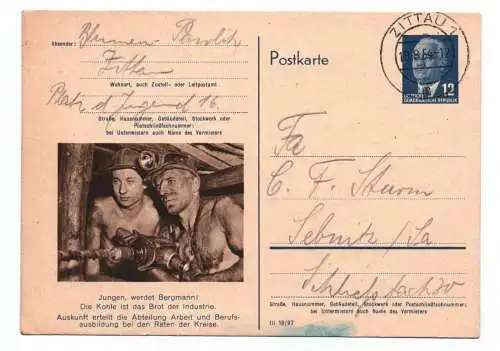 Absender: Blumen
Zittau
Wohnort, auch Zustell- oder Leitpostamt
Platz d. Jugend 16
Straße, Hausnummer, Gebäudeteil, Stockwerk oder
Postschließfachnummer;
bei Untermietern auch Name des Vermieters
Jungen, werdet Bergmann!
Die Kohle ist das Brot der Industrie.
Auskunft erteilt die Abteilung Arbeit und Berufs-
ausbildung bei den Räten der Kreise.
Postkarte
ZITTAU
12
DEMOKRATISCHE REPUBLIK
Fa
C. F. Sturm
Sebnitz/Sa
Straße, Hausnummer, Gebäudeteil, Stockwerk oder Postschließfachnummer;
bei Untermietern auch Name des Vermieters
III/18/97